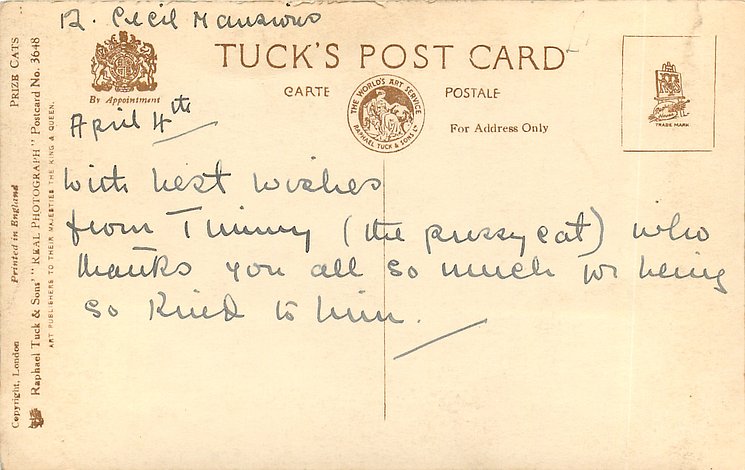 12. Cecil Mansions
TUCK'S POST CARD
By Appointment
CARTE POSTALE
THE WORLD'S ART SERVICE
RAPHAEL TUCK & SONS LTD
For Address Only
TRADE MARK
April 4th
With best wishes
from Timmy (the pussy cat) who
thanks you all so much for being
so kind to him.
Copyright, London Printed in England PRIZE CATS
Raphael Tuck & Sons' "REAL PHOTOGRAPH" Postcard No. 3648
ART PUBLISHERS TO THEIR MAJESTIES THE KING & QUEEN.